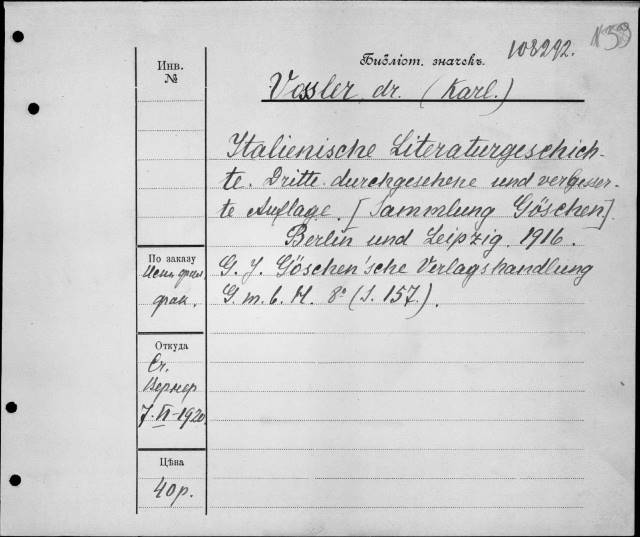 108292.
Библіот. значекъ.
Vossler, dr. (Karl.)
Italienische Literaturgeschich-
te. Dritte durchgesehene und verbesser-
te Auflage. [Sammlung Göschen].
Berlin und Leipzig. 1916.
G. J. Göschen'sche Verlagshandlung
G. m. b. H. 8° (S. 157.).
Инв.
№
По заказу
фак.
Откуда
Ст.
Вернер
7. VI-1920
Цѣна
40 р.